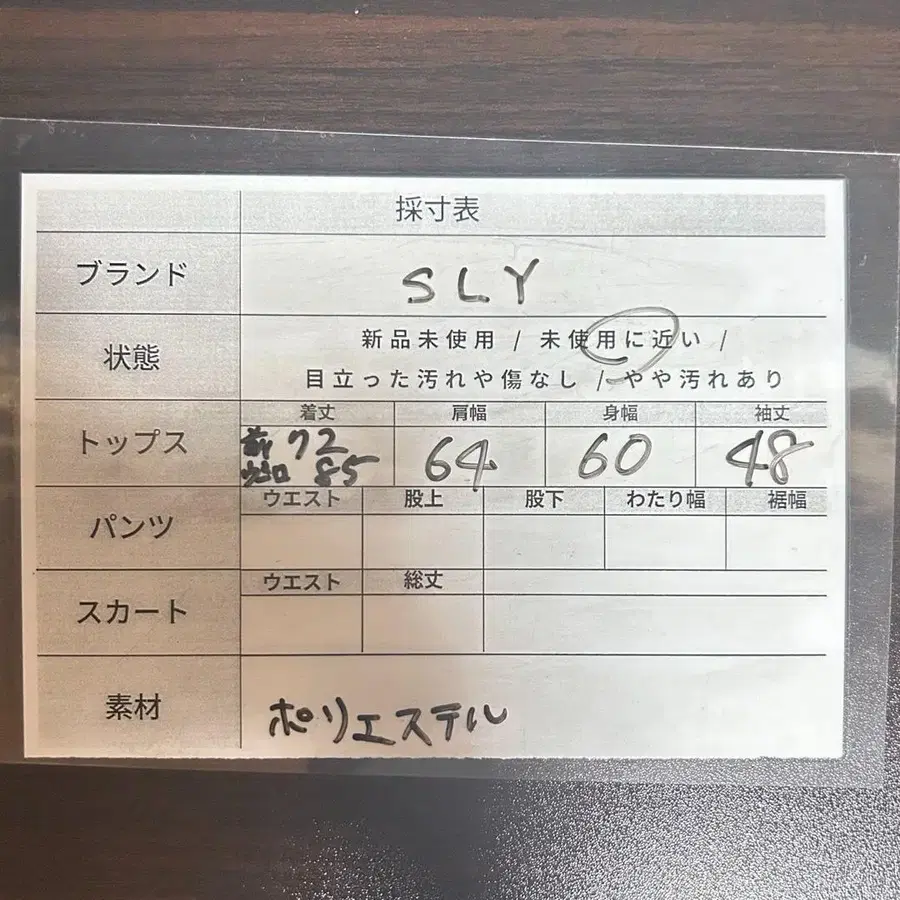 採寸表
ブランド SLY
状態 新品未使用 / 未使用に近い /
目立った汚れや傷なし / やや汚れあり
トップス 着丈 肩幅 身幅 袖丈
前72 64 60 48
85
パンツ ウエスト 股上 股下 わたり幅 裾幅
スカート ウエスト 総丈
素材 ポリエステル